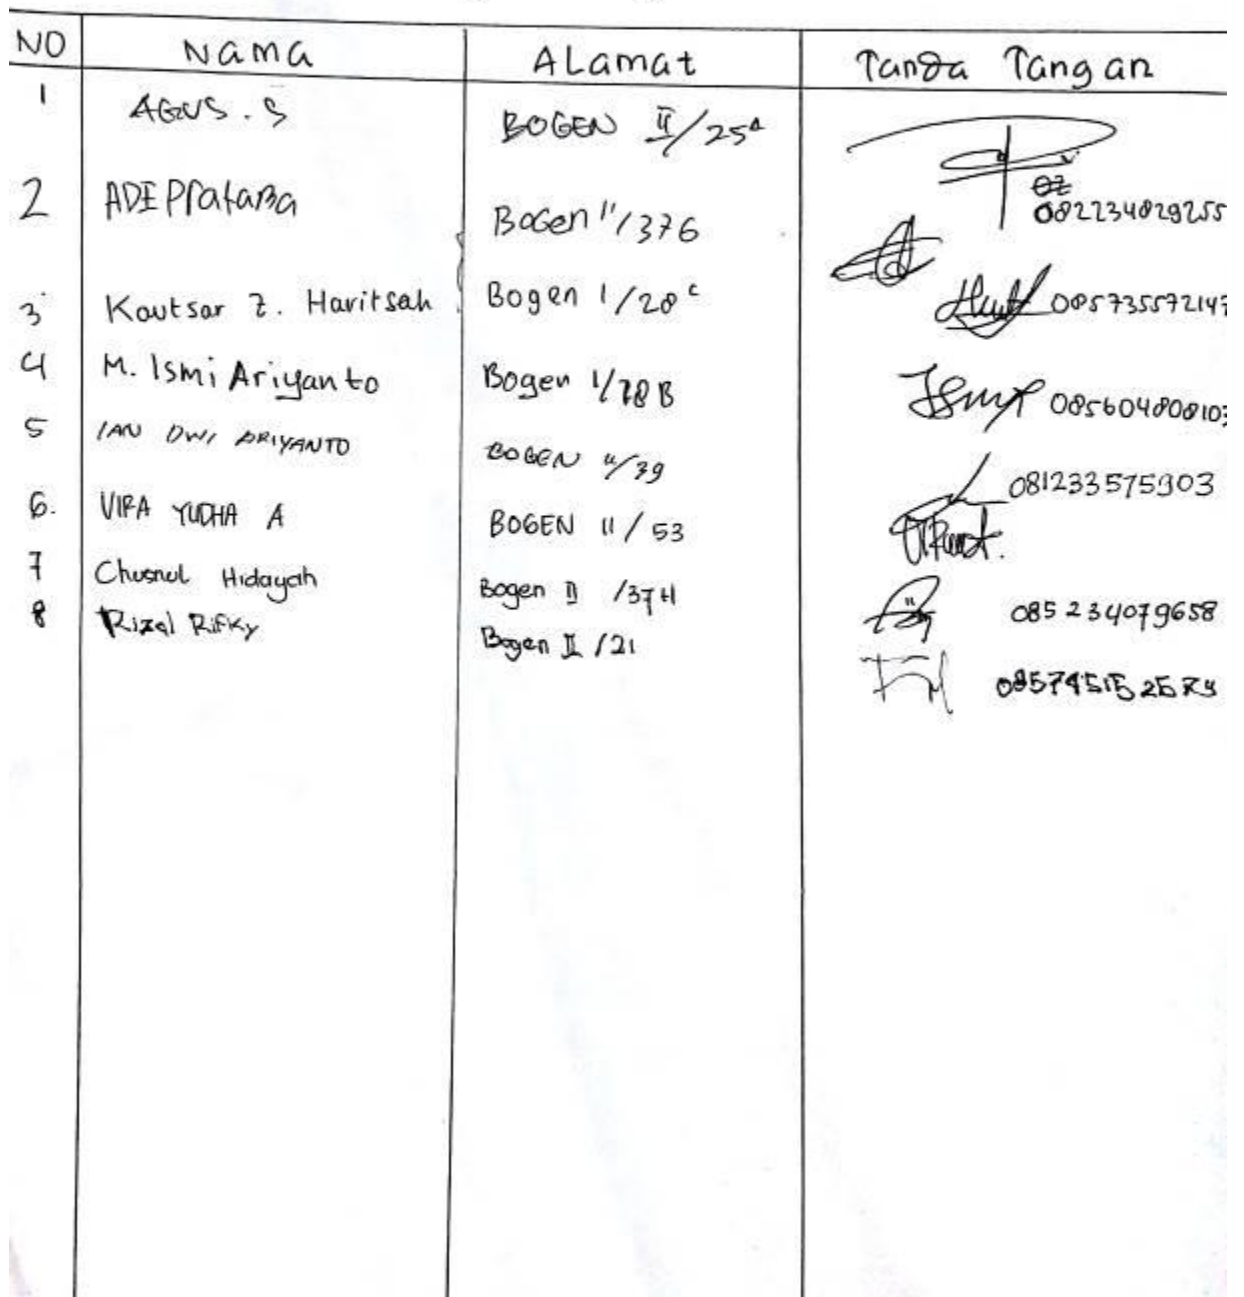 NO Nama ALamat Tanda Tangan
1 AGUS . S BOGEN II/25A
2 ADE Pratama Bogen II/376 082234829255
3 Kautsar Z. Haritsah Bogen 1/28c 085735572147
4 M. Ismi Ariyanto Bogen 1/28B 085604808103
5 IAN DWI ARIYANTO BOGEN II/39 081233575903
6. VIRA YUDHA A BOGEN II/53
7 Chusnul Hidayah Bogen II /37H 085234079658
8 Rizal Rifky Bogen II /21